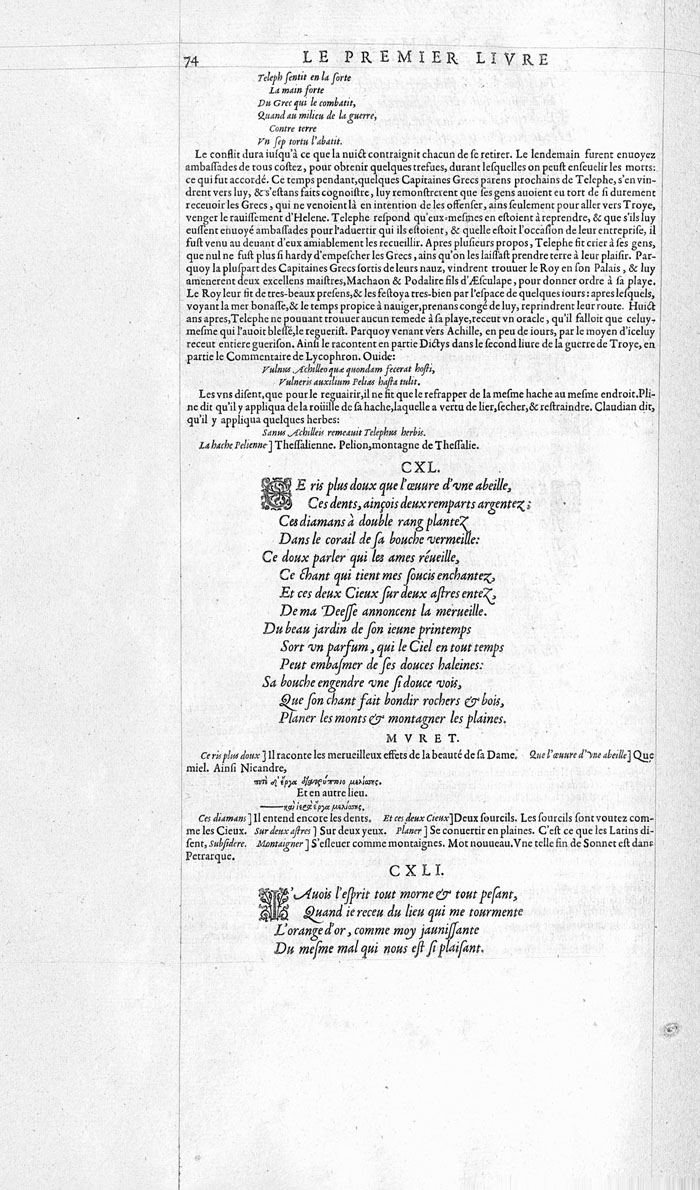 74 LE PREMIER LIVRE
Teleph ſentit en la ſorte
La main forte
Du Grec qui le combatit,
Quand au milieu de la guerre,
Contre terre
Vn ſep tortu l'abatit.
Le conflit dura iuſqu'à ce que la nuict contraignit chacun de ſe retirer. Le lendemain furent enuoyez
ambaſſades de tous coſtez, pour obtenir quelques treſues, durant leſquelles on peuſt enſeuelir les morts:
ce qui fut accordé. Ce temps pendant, quelques Capitaines Grecs parens prochains de Telephe, s'en vin-
drent vers luy, & s'eſtans faits cognoiſtre, luy remonſtrerent que ſes gens auoient eu tort de ſi durement
receuoir les Grecs, qui ne venoient là en intention de les offenſer, ains ſeulement pour aller vers Troye,
venger le rauiſſement d'Helene. Telephe reſpond qu'eux-meſmes en eſtoient à reprendre, & que s'ils luy
euſſent enuoyé ambaſſades pour l'aduertir qui ils eſtoient, & quelle eſtoit l'occaſion de leur entrepriſe, il
fuſt venu au deuant d'eux amiablement les recueillir. Apres pluſieurs propos, Telephe fit crier à ſes gens,
que nul ne fuſt plus ſi hardy d'empeſcher les Grecs, ains qu'on les laiſſaſt prendre terre à leur plaiſir. Par-
quoy la pluſpart des Capitaines Grecs ſortis de leurs nauz, vindrent trouuer le Roy en ſon Palais, & luy
amenerent deux excellens maiſtres, Machaon & Podalire fils d'Æſculape, pour donner ordre à ſa playe.
Le Roy leur fit de tres-beaux preſens, & les feſtoya tres-bien par l'eſpace de quelques iours: apres leſquels,
voyant la mer bonaſſe, & le temps propice à nauiger, prenans congé de luy, reprindrent leur route. Huict
ans apres, Telephe ne pouuant trouuer aucun remede à ſa playe, receut vn oracle, qu'il falloit que celuy-
meſme qui l'auoit bleſſé, le regueriſt. Parquoy venant vers Achille, en peu de iours, par le moyen d'iceluy
receut entiere gueriſon. Ainſi le racontent en partie Dictys dans le ſecond liure de la guerre de Troye, en
partie le Commentaire de Lycophron. Ouide:
Vulnus Achilleo quæ quondam fecerat hoſti,
Vulneris auxilium Pelias haſta tulit.
Les vns diſent, que pour le reguairir, il ne fit que le refrapper de la meſme hache au meſme endroit. Pli-
ne dit qu'il y appliqua de la roüille de ſa hache, laquelle a vertu de lier, ſecher, & reſtraindre. Claudian dit,
qu'il y appliqua quelques herbes:
Sanus Achilleis remeauit Telephus herbis.
La hache Pelienne] Theſſalienne. Pelion, montagne de Theſſalie.
CXL.
CE ris plus doux que l'œuure d'vne abeille,
Ces dents, ainçois deux remparts argentez;
Ces diamans à double rang plantez
Dans le corail de ſa bouche vermeille:
Ce doux parler qui les ames réueille,
Ce chant qui tient mes ſoucis enchantez,
Et ces deux Cieux ſur deux aſtres entez,
De ma Deeſſe annoncent la merueille.
Du beau jardin de ſon ieune printemps
Sort vn parfum, qui le Ciel en tout temps
Peut embaſmer de ſes douces haleines:
Sa bouche engendre vne ſi douce vois,
Que ſon chant fait bondir rochers & bois,
Planer les monts & montagner les plaines.
MVRET.
Ce ris plus doux] Il raconte les merueilleux effets de la beauté de ſa Dame. Que l'œuure d'vne abeille] Que
miel. Ainſi Nicandre,
ἔργα μελίσσης.
Et en autre lieu.
—καὶ ἱερὰ ἔργα μελίσσης.
Ces diamans] Il entend encore les dents. Et ces deux Cieux] Deux ſourcils. Les ſourcils sont voutez com-
me les Cieux. Sur deux aſtres] Sur deux yeux. Planer] Se conuertir en plaines. C'eſt ce que les Latins di-
ſent, Subſidere. Montaigner] S'eſleuer comme montaignes. Mot nouueau. Vne telle fin de Sonnet eſt dans
Petrarque.
CXLI.
I'Auois l'eſprit tout morne & tout peſant,
Quand ie receu du lieu qui me tourmente
L'orange d'or, comme moy jauniſſante
Du meſme mal qui nous eſt ſi plaiſant.